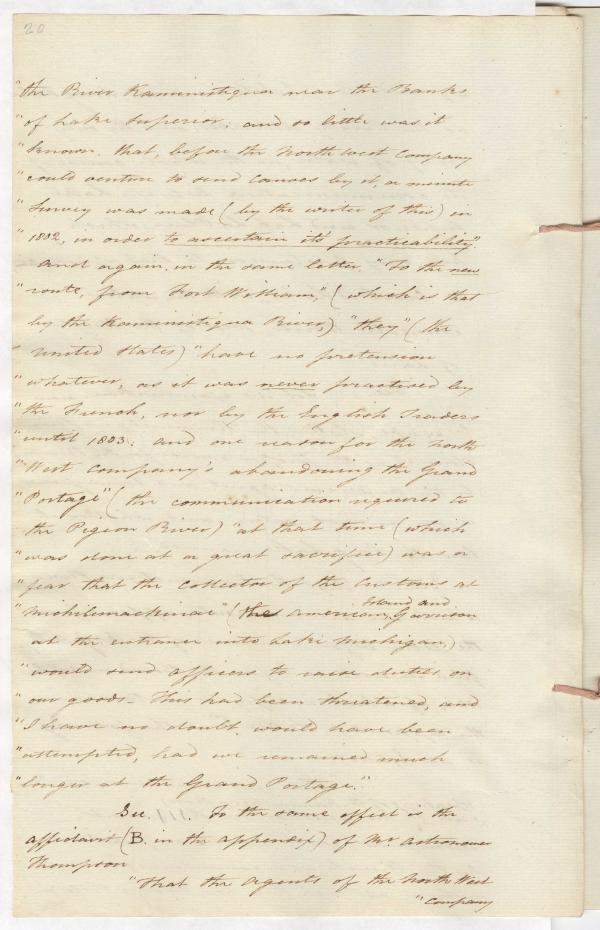 20
"the River Kaministiqua near the Banks
"of Lake Superior; and so little was it
"known, that, before the North West Company
"could venture to send Canoes by it, a minute
"Survey was made (by the writer of this) in
"1802, in order to ascertain it's practicability."
and again, in the same letter. "To the new
"route, from Fort William," (which is that
by the Kaministiqua River,) "they" (the
United States) "have no pretension
"whatever, as it was never practised by
"the French, nor by the English Traders
"until 1803: and one reason for the North
"West Company's abandoning the Grand
"Portage" (the communication required to
the Pigeon River) "at that time (which
"was done at a great sacrifice) was a
"fear that the Collector of the Customs at
"Michilimackinac" (the American Island and Garrison
at the entrance into Lake Michigan,)
"would send officers to raise duties on
"our goods - This had been threatened, and
"I have no doubt would have been
"attempted, had we remained much
"longer at the Grand Portage."
To the same effect is the
affidavit (B. in the appendix) of Mr. Astronomer
Thompson
"That the Agents of the North West
"Company